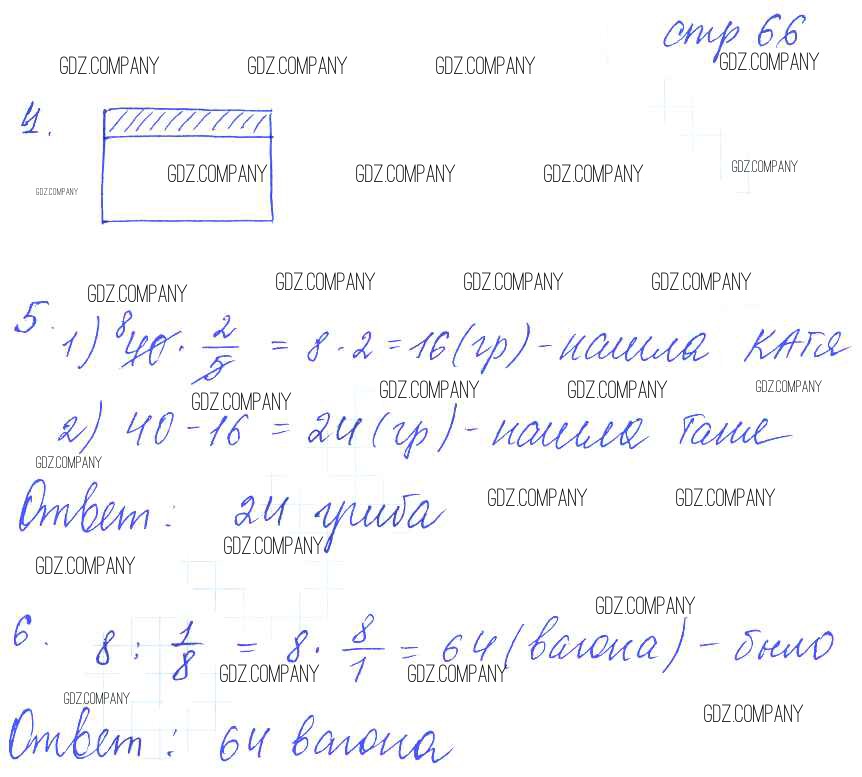 стр 66
GDZ.COMPANY GDZ.COMPANY GDZ.COMPANY GDZ.COMPANY
4.
GDZ.COMPANY GDZ.COMPANY GDZ.COMPANY GDZ.COMPANY
GDZ.COMPANY
GDZ.COMPANY GDZ.COMPANY GDZ.COMPANY GDZ.COMPANY
5. 1) 8 40 · 2/5 = 8 · 2 = 16 (гр) - нашла Катя
GDZ.COMPANY GDZ.COMPANY GDZ.COMPANY GDZ.COMPANY
2) 40 - 16 = 24 (гр) - нашла Таня
GDZ.COMPANY
Ответ: 24 гриба
GDZ.COMPANY GDZ.COMPANY
GDZ.COMPANY GDZ.COMPANY
GDZ.COMPANY
6. 8 : 1/8 = 8 · 8/1 = 64 (вагона) - было
GDZ.COMPANY GDZ.COMPANY
GDZ.COMPANY GDZ.COMPANY
Ответ: 64 вагона